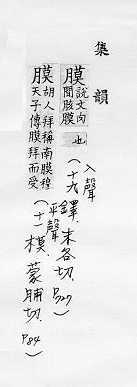 集韻
膜
說文肉
間胲膜
也
入聲
(十九)鐸.末各切.P727)
膜
胡人拜稱南膜穆
天子傳膜拜而受
平聲
(十一)模.蒙脯切.P84)